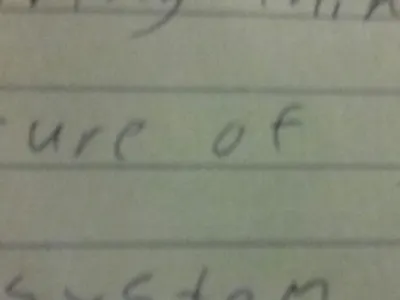 ure of
system